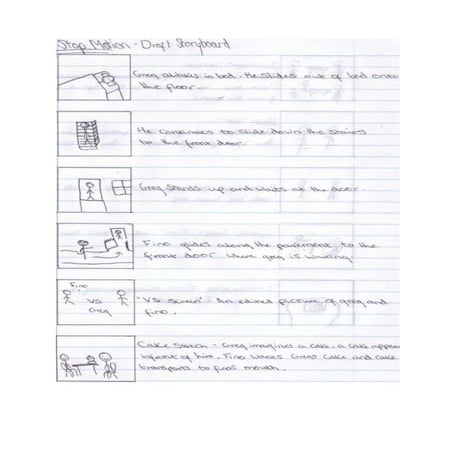 Stop Motion - Draft Storyboard
Greg awakes in bed. He slides out of bed onto
the floor.
He continues to slide down the stairs
to the front door.
Greg stands up and waits at the door.
Fino glides along the pavement to the
front door where greg is waiting
Fino
VS
Greg
"VS Screen" - An edited picture of greg and
fino.
Cake Sketch - Greg imagines a cake, a cake appears
infront of him. Fino wants Gregs cake and cake
transports to finos mouth.